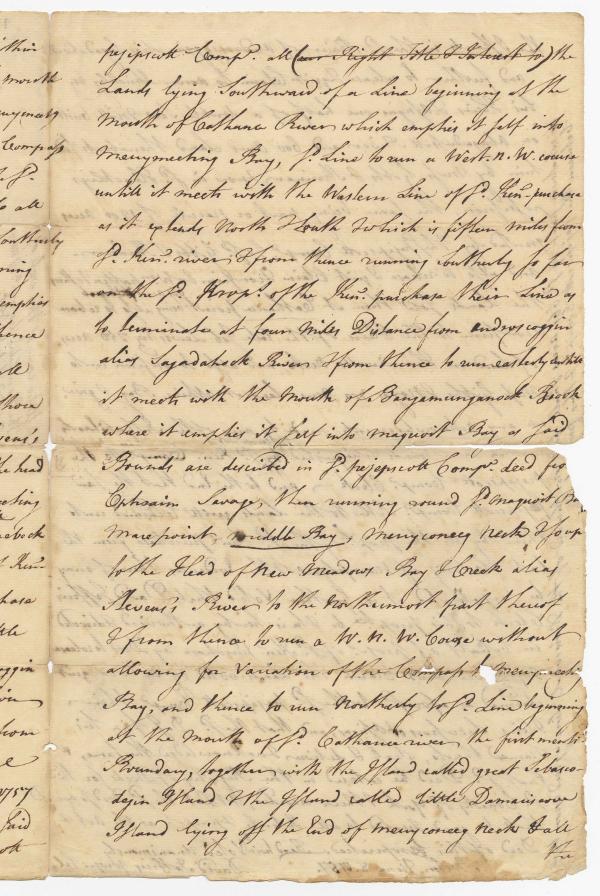 pejepscott Comp.y all (our Right Title & Interest to) the
Lands lying Southward of a Line beginning at the
Mouth of Cathance River which empties it self into
Merrymeeting Bay, s.d Line to run a West. n. W. course
untill it meets with the Western Line of s.d Ken.c purchase
as it extends North & South & which is fifteen miles from
s.d Ken.c river & from thence running Southerly so far
on the s.d Prop.rs of the Ken.c purchase their Line as
to terminate at four Miles Distance from androscoggin
alias Sagadahock River & from thence to run easterly untill
it meets with the Mouth of Bungamunganock Brook
where it empties it self into maquoit Bay as said
Bounds are described in s.d pejepscott Comp.ys deed fro
Ephraim Savage, then running round s.d Maquoit Bay
mare point, middle Bay, merryconeeg neck & so up
to the Head of New Meadows Bay & Creek alias
Stevens's River to the Northermost part thereof
& from thence to run a W. N. W. Course without
allowing for Variation of the Compass to merrymeeting
Bay, and thence to run Northerly to s.d Line beginning
at the Mouth of s.d Cathance river the first menti
Boundary, together with the Island called great Sebasco
degin Island & the Island called little Damariscove
Island lying off the End of merryconeeg neck & all
the